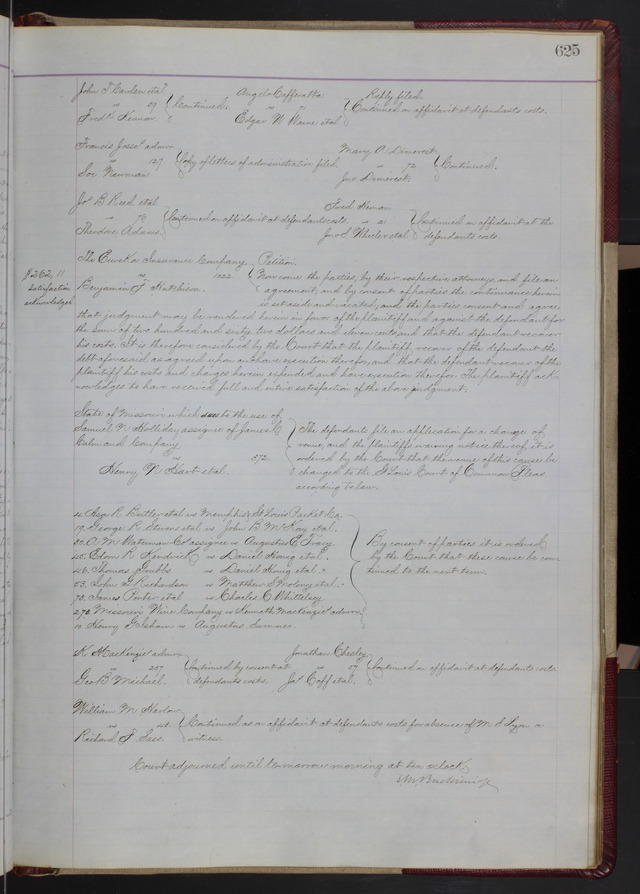 625
John T. Carden et al
vs 59 Continued.
Fredk Kennan.
Angelo Cafferatta Reply filed.
vs 71 Continued on affidavit at defendants costs.
Edgar W. Paine et al
Francis admr
vs 127 Copy of letters of administration filed.
Newman
Mary A. Demerest
vs 72 Continued.
Jno Demerest.
Jos B. Reed et al
vs 78 Continued on affidavit at defendants costs.
Theodore Adams
Fred
vs 21 Continued on affidavit at the
Jno S. Wheeler et al defendants costs
$262.11
Satisfaction
acknowledged
The Eureka Insurance Company Petition.
vs 1022 Now come the parties, by their respective attorneys, and file an
Benjamin F. Hutchison. agreement, and by consent of parties the continuance herein
is set aside and vacated, and the parties consent and agree,
that judgment may be rendered herein in favor of the plaintiff and against the defendant for
the sum of two hundred and sixty two dollars and eleven cents and that the defendant recover
his costs. It is therefore considered by the Court that the plaintiff, recover of the defendant the
debt aforesaid as agreed upon and have execution therefor, and that the defendant recover of the
plaintiff his costs and charges herein expended and have execution therefor. The plaintiff ack-
nowledges to have received full and entire satisfaction of the above judgment.
State of Missouri which sues to the use of
Samuel N. Holliday assignee of James C
Calm and Company
vs 272
Henry N. Hart et al.
The defendants file an application for a change of
venue, and the plaintiffs waiving notice thereof, it is
ordered by the Court that the venue of this cause be
changed to the St Louis Court of Common Pleas.
according to law.
4. R. Butler et al vs Memphis & St Louis Packet Co.
19. George R. Stevens et al vs John B. McKay et al.
30. A. M. Waterman & Co assignee vs Augustus E. Tracy
45. Edgar R. Kendrick vs Daniel Honig et al.
48. Thomas Grubbs vs Daniel Honig et al.
53. John G. Richardson vs Matthew S. Molony et al.
70. James Porter et al vs Charles C. Whittlesey
270. Missouri Wine Company vs Kenneth MacKenzie's admr
10. Henry G. Isham vs Augustus Sumner.
By consent of parties it is ordered
by the Court that these cause be con-
tinued to the next term.
K. MacKenzie's admr
vs 257 Continued by consent at
Geo. B. Michael. defendants costs.
Jonathan Chesley
vs 57 Continued on affidavit at defendants costs
Jas Goff et al.
William M. Harlow
vs Continued on affidavit at defendants costs for absence of M. S. Lyon a
Richard F. Sass. witness.
Court adjourned until tomorrow morning at ten o'clock,